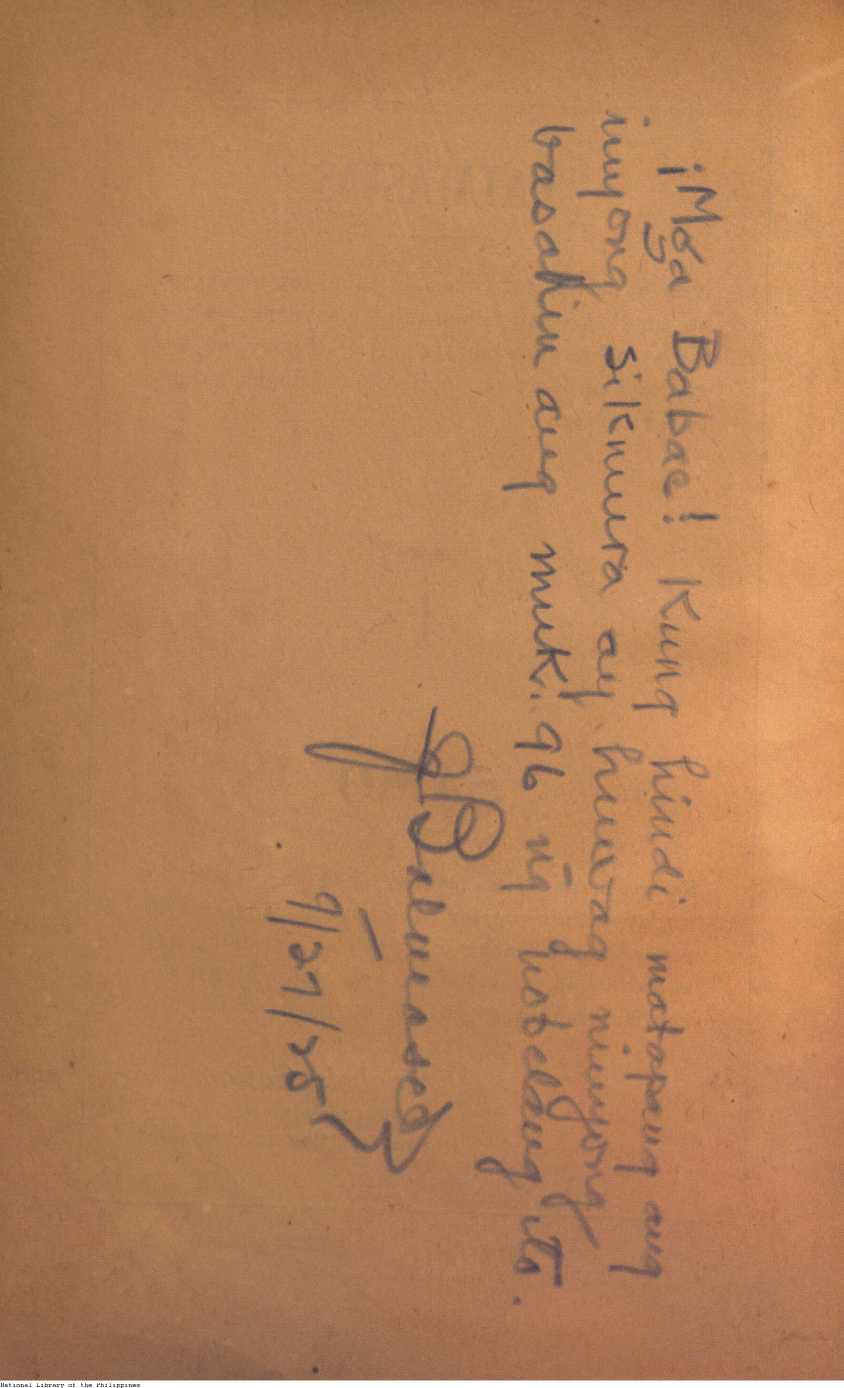 ¡Mga Babae! Kung hindi matapang ang
inyong sikmura ay huwag ninyong
basahin ang muk. 96 ng nobelang ito.
9/27/25
National Library of the Philippines